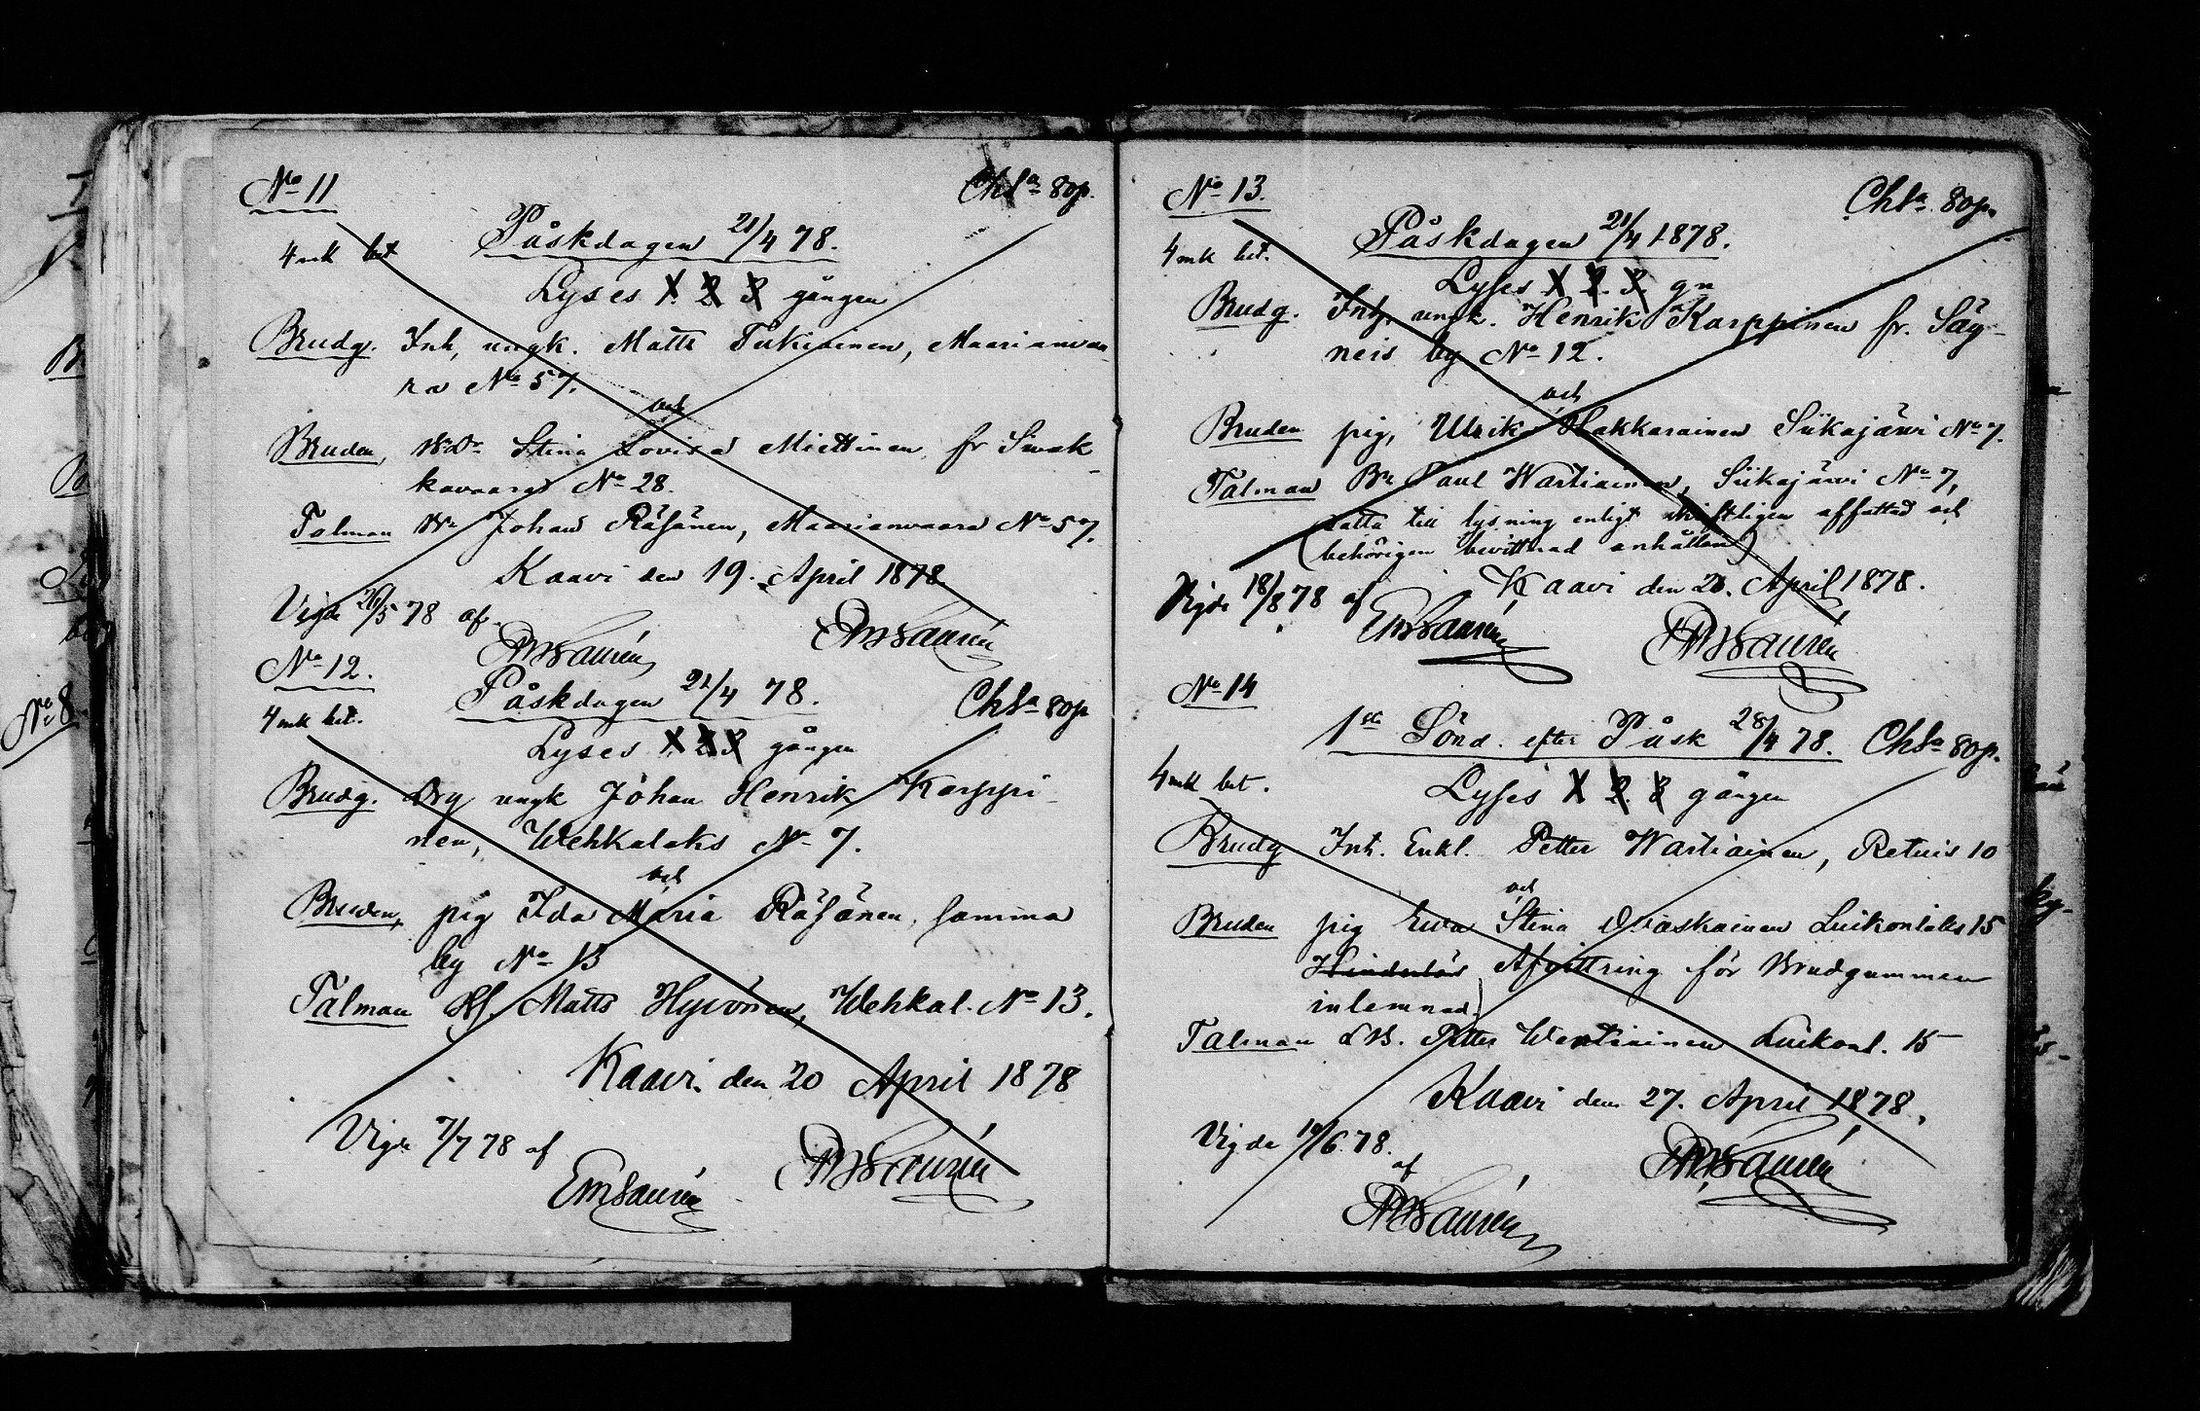 No 11
Chsa 80p.
Påskdagen 21/4 78.
4 mk bet
Lyses 1. 2 3 gången
Brudg. Inh, ungk. Matts Tukiainen, Maarianvaa
ra No 57.
och
Bruden, Stina Lovisa Miettinen, fr Sivak
kavaara No 28.
Talman Johan Räsänen, Maarianvaara No 57.
Kaavi den 19. April 1878
Vigde 26/5 78 af
No 12.
Påskdagen 21/4 78.
Chsa 80p
4 mk bet.
Lyses 1. 2 3 gången
Brudg. Drg ungk Johan Henrik Karppi
nen, Wehkalaks No 7.
och
Bruden, pig Ida Maria Räsänen, samma
by No 13
Talman Matts Hyvönen, Wehkal. No 13.
Kaavi den 20 April 1878
Vigde 7/7 78 af
EmSaurén
No 13.
Chsa 80p.
Påskdagen 21/4 1878.
4 mk bet.
Lyses 1 2. 3. gn
Brudg. Inh. ungk. Henrik Karppinen fr. Säy
neis by No 12.
och
Bruden pig, Ulrika Hakkarainen Siikajärvi No 7.
Talman Paul Wartiainen, Siikajärvi No 7,
till lysning enligt skriftligen affattad och
(behörigen bevittnad anhållan)
Kaavi den 20. April 1878.
Vigde 18/8 78 af
EmSaurén
No 14
1st Sönd. efter Påsk 28/4 78.
Chsa 80p.
4 mk bet.
Lyses 1 2. 3 gången
Brudg Inh. Enkl. Petter Wartiainen, Retunis 10
och
Bruden pig Ewa Stina Ovaskainen Luikonlaks 15
Afvittring för Brudgummen
inlemnad
Talman Petter Wartiainen Luikonl. 15
Kaavi den 27. April 1878.
Vigda 10/6 78.
af
No 8